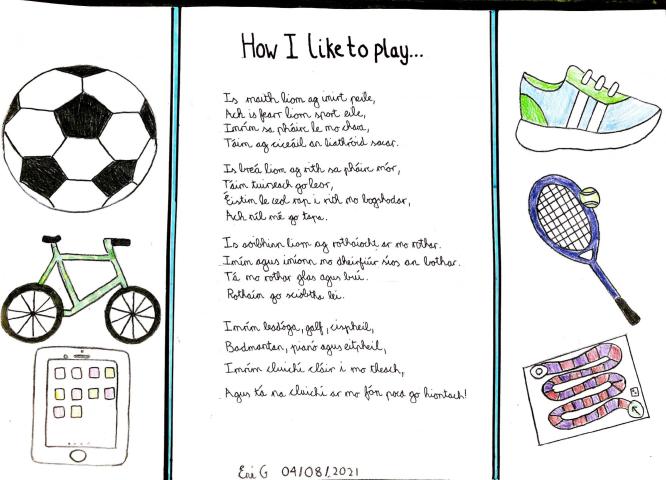 How I like to play...
Is maith liom ag imirt peile,
Ach is fearr liom sport eile,
Imrím sa pháirc le mo chara,
Táim ag ciceáil an liathróid sacar.
Is breá liom ag rith sa pháirc mór,
Táim tuirseach go leor,
Éistim le ceol rap i rith mo bogshodar,
Ach níl mé go tapa.
Is aoibhinn liom ag rothaíocht ar mo rothar.
Imím agus iníonn mo dheirfiúr síos an bothar.
Tá mo rothar glas agus buí.
Rothaím go sciobtha lei.
Imrím leadóga, galf, cispheil,
Badmantan, pianó agus eitpheil,
Imrím cluichí cláir i mo theach,
Agus tá na cluichí ar mo fón poca go hiontach!
G 04/08/2021